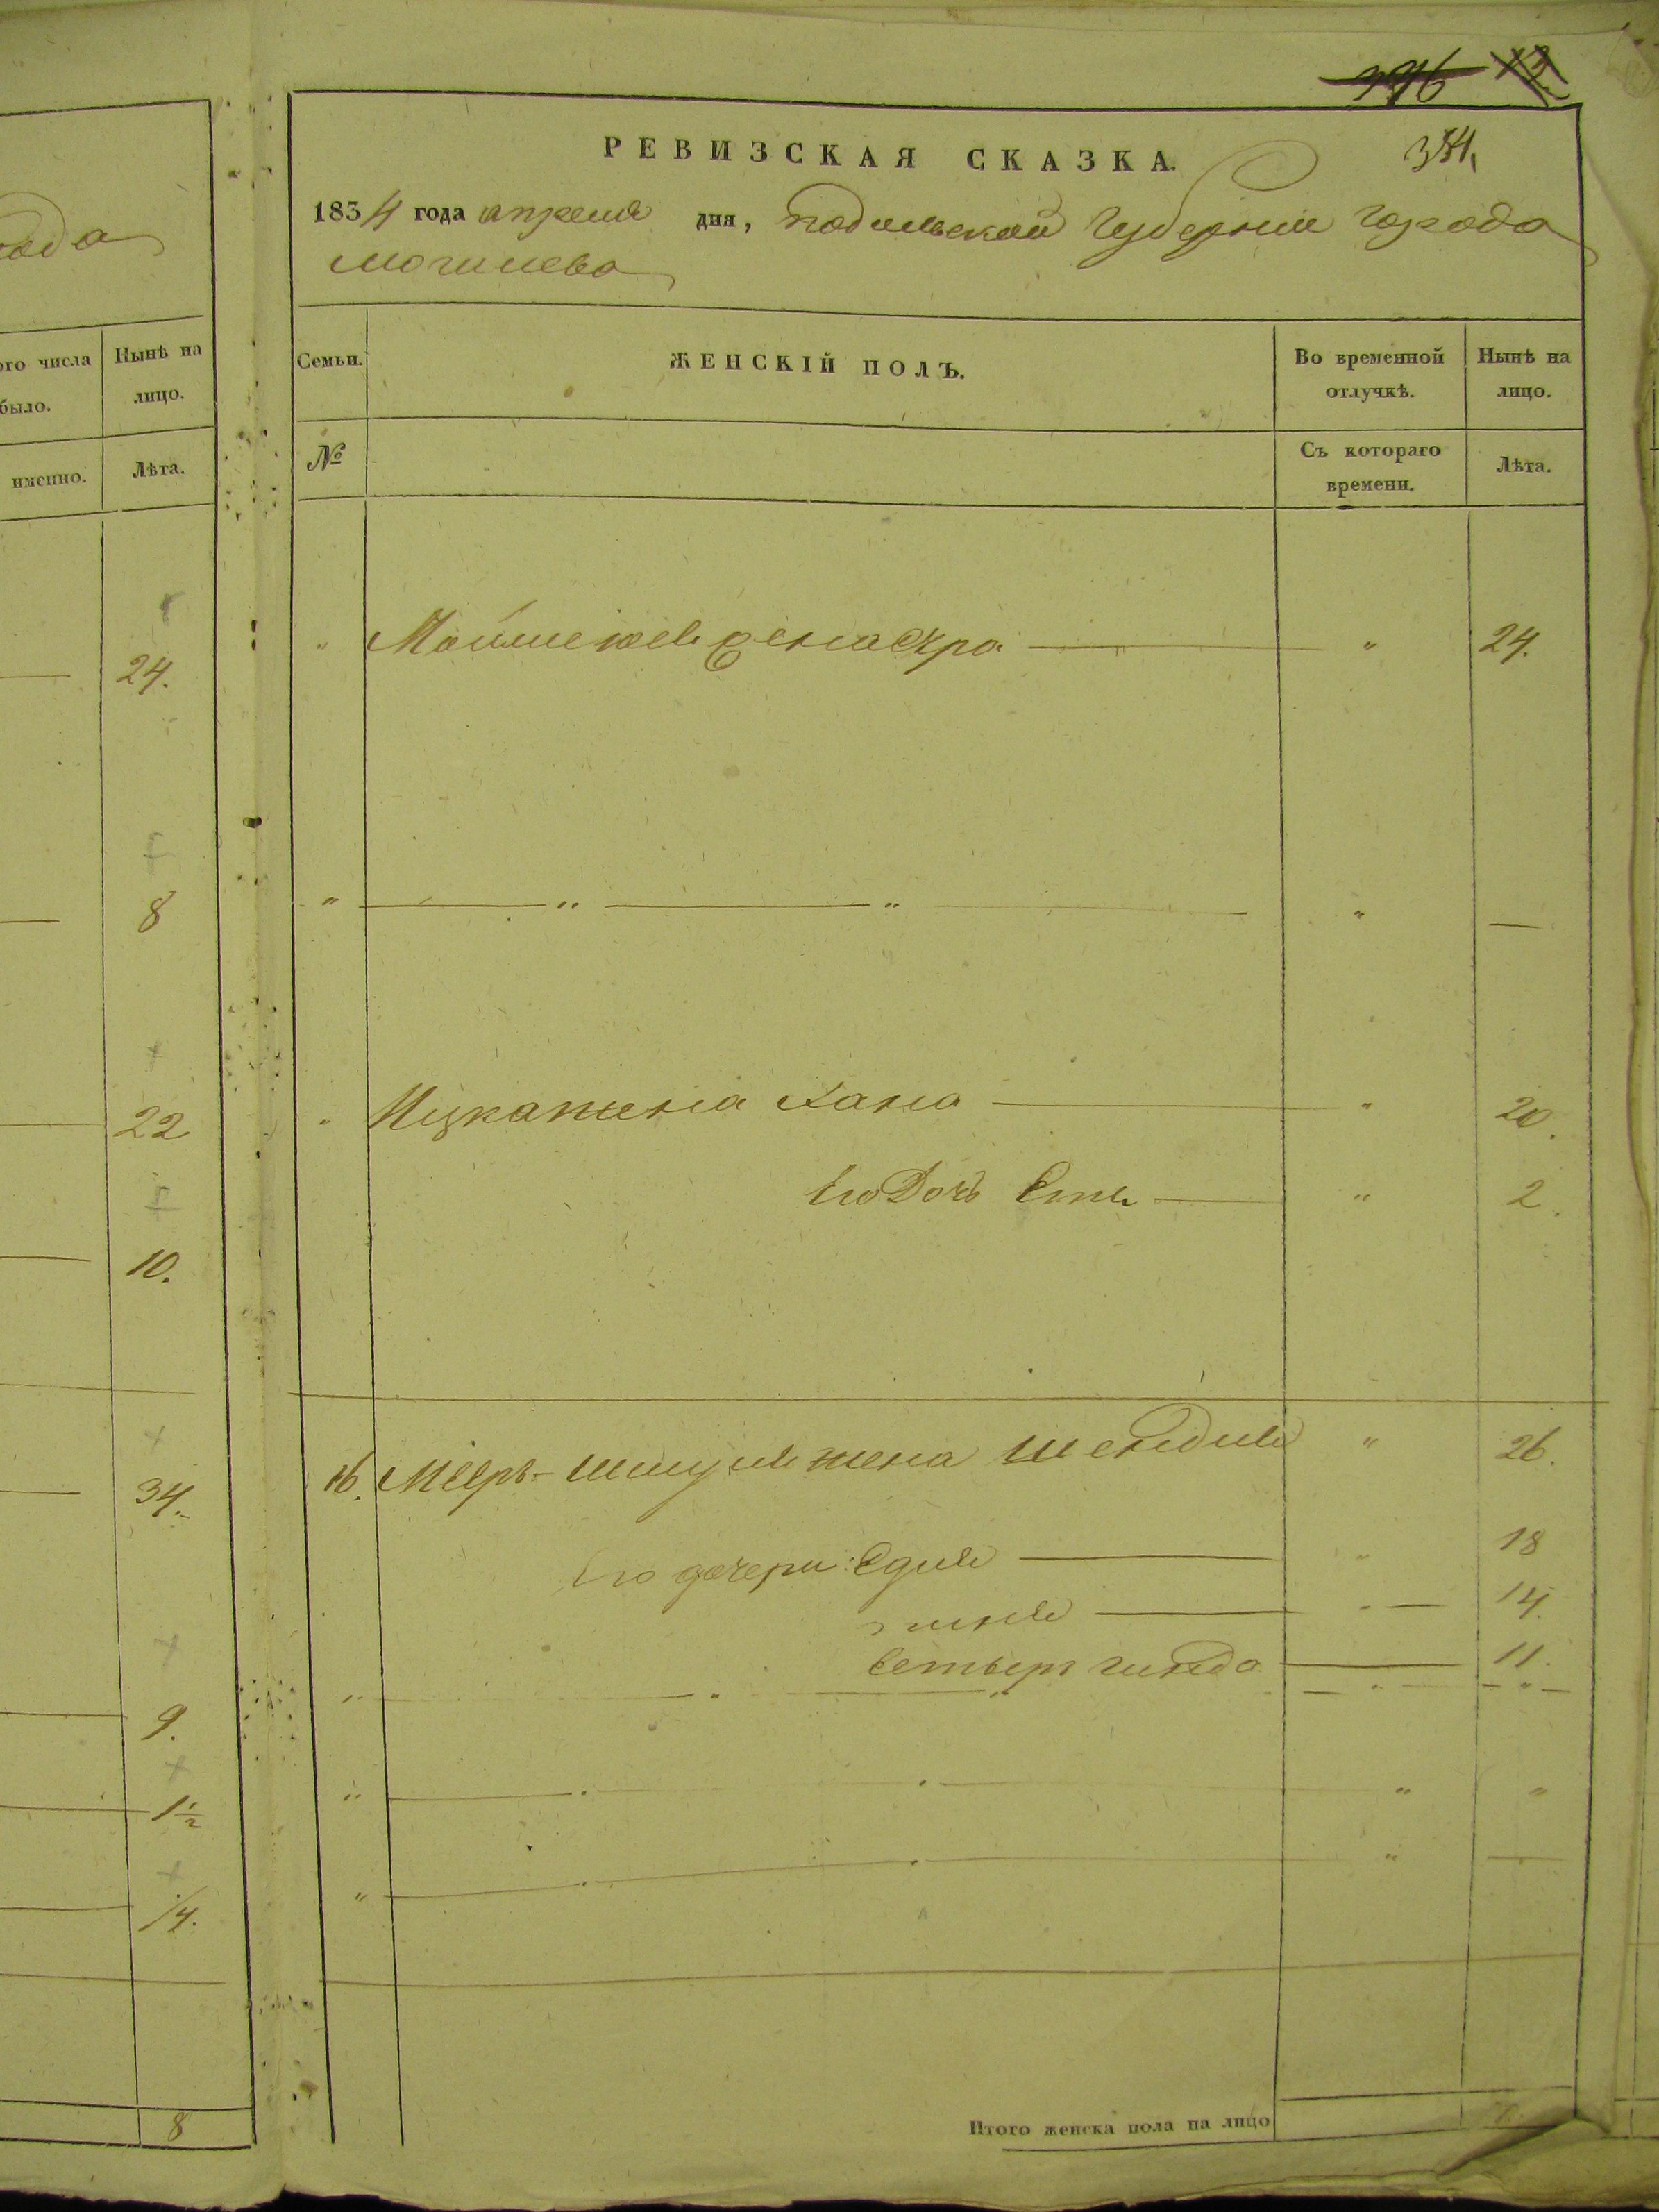 ода
ого числа
Нынѣ на
было.
лицо.
именно.
Лѣта.
24.
8
22
10.
34.
9.
1½
1/4.
8
РЕВИЗСКАЯ СКАЗКА.
1834 года апреля дня, подольской Губернии города
могилева
Семьи.
ЖЕНСКІЙ ПОЛЪ.
Во временной
отлучкѣ.
Нынѣ на
лицо.
№
Съ котораго
времени.
Лѣта.
" 24.
" " " "
Ицка жена Хана " 20.
Его Дочь " 2.
16. Меер- Шмуля жена Шендля " 26.
Его дочери: Едля " 18
14.
гинда 11.
Итого женска пола на лицо